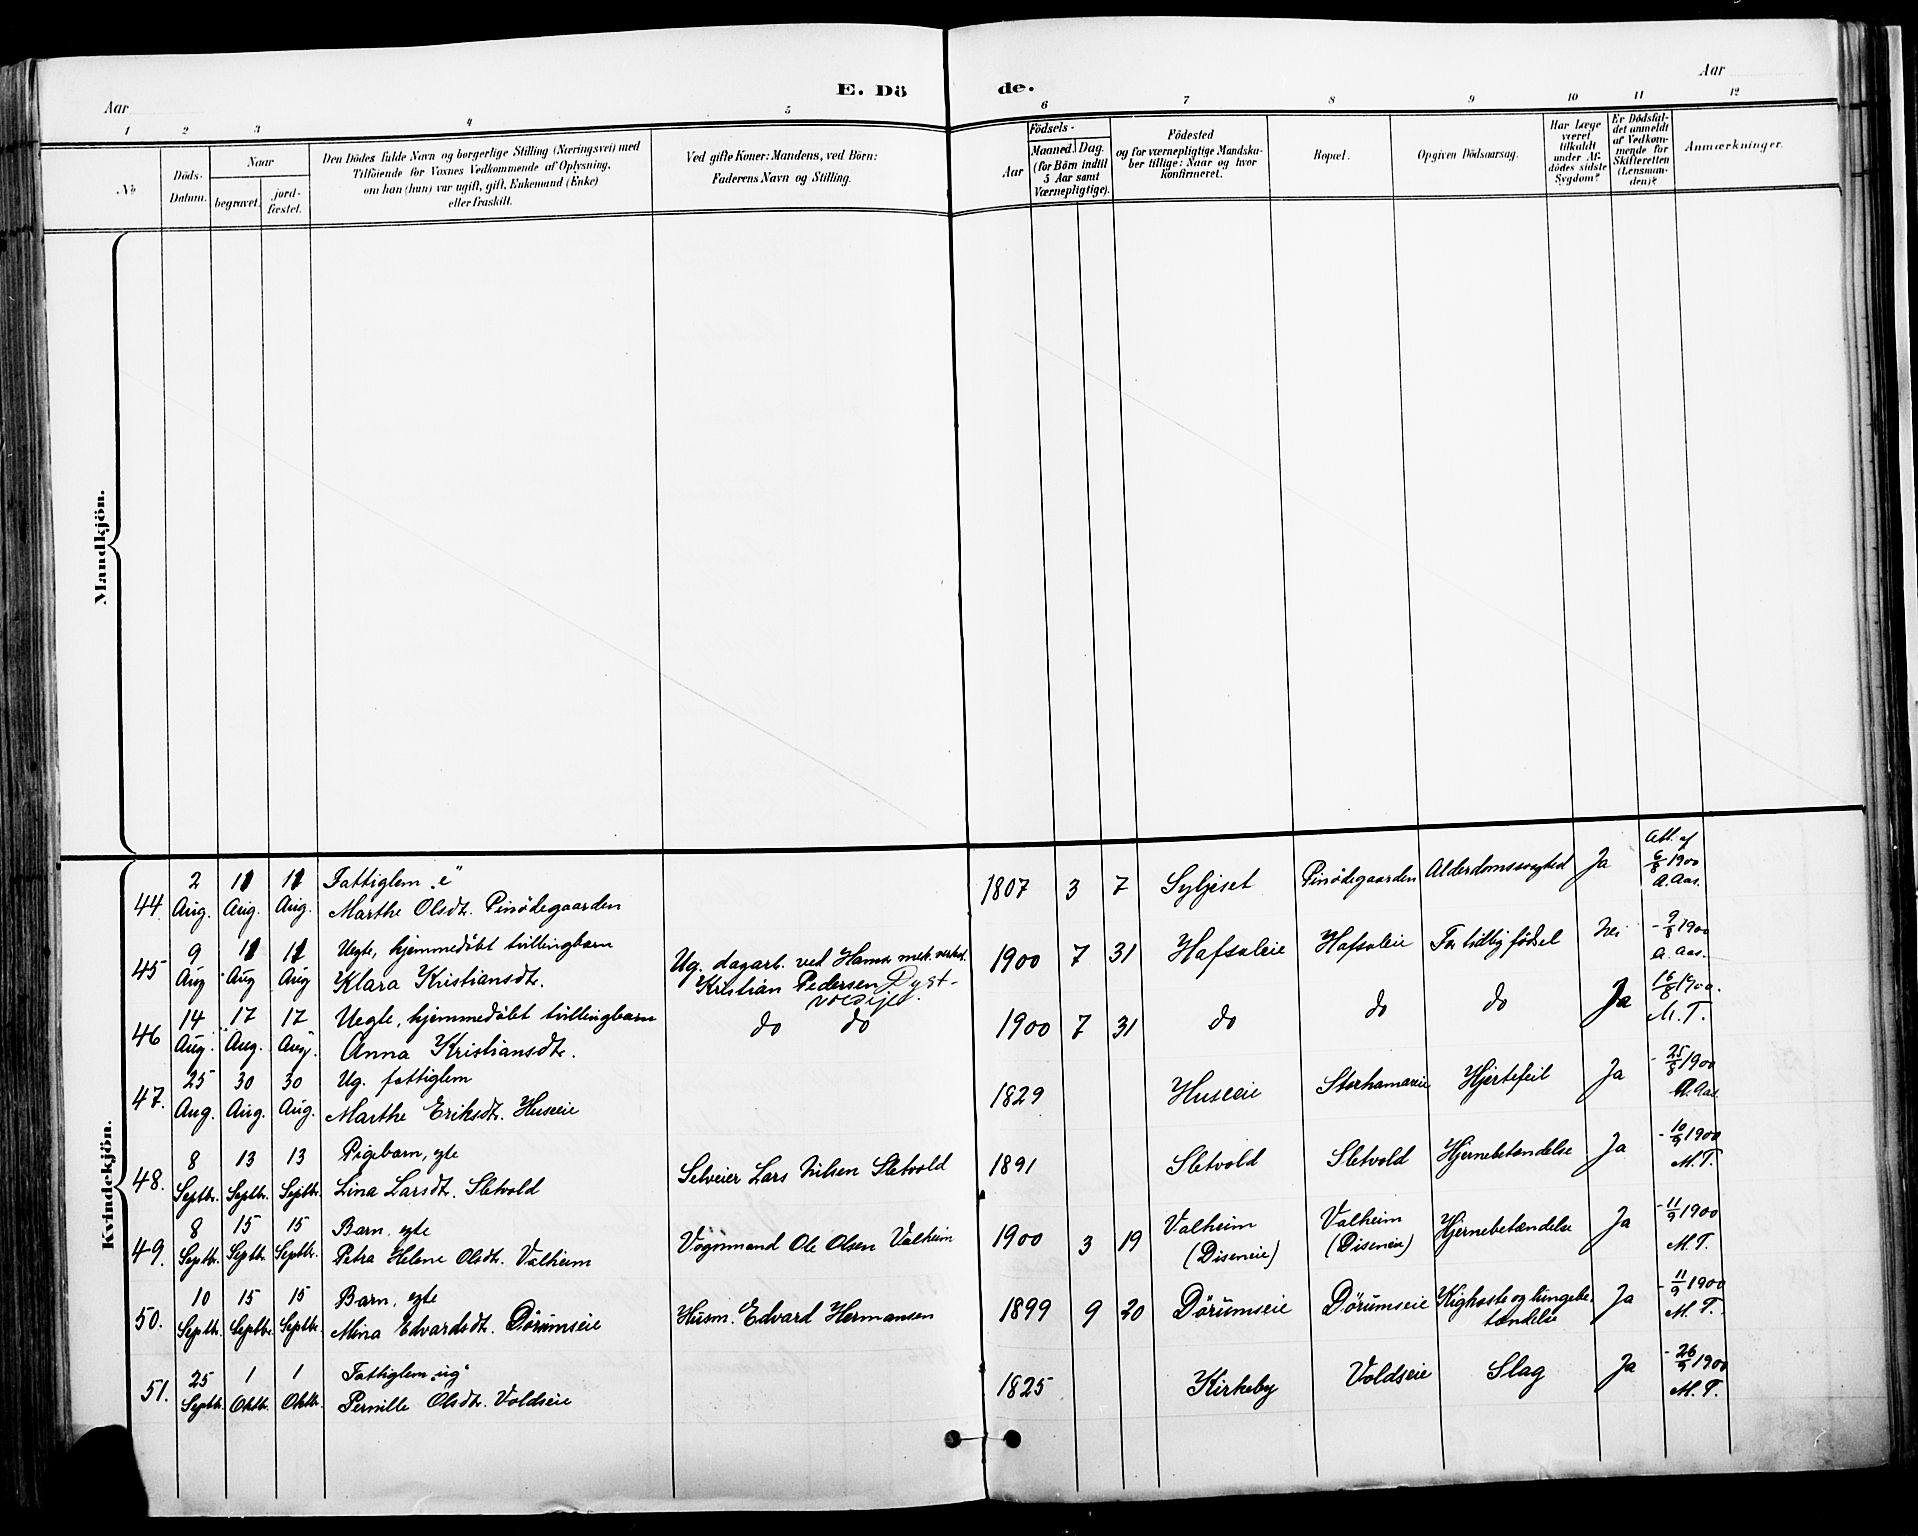 E. Döde.
Aar
Aar
1 2 3 4 5 6 7 8 9 10 11 12
No
Döds-Datum.
Naar
begravet.
jord-fæstet.
Den Dödes fulde Navn og borgerlige Stilling (Næringsvei) med
Tilföiende for Voxnes Vedkommende af Oplysning,
om han (hun) var ugift, gift, Enkemand (Enke)
eller fraskilt.
Ved gifte Koner: Mandens, ved Börn:
Faderens Navn og Stilling.
Födsels-
Aar
Maaned. Dag.
(for Börn indtil
5 Aar samt
Værnepligtige).
Födested
og for værnepligtige Mandska-
ber tillige: Naar og hvor
konfirmeret.
Bopæl.
Opgiven Dödsaarsag.
Har Læge
været
tilkaldt
under Af-
dödes sidste
Sygdom?
Er Dödsfal-
det anmeldt
af Vedkom-
mende for
Skifteretten
(Lensman-
den)?
Anmærkninger.
Mandkjön.
Kvindekjön.
44. 2 Aug. 11 Aug. 11 Aug. Fattiglem "e"
Marthe Olsdt. Pinödegaarden 1807 3 7 Syljeset Pinödegaarden Alderdomssvaghed Ja Att. af 6/8 1900 A. Aas.
45 9 Aug 11 Aug 11 Aug Uegte, hjemmedöbt tvillingbarn
Klara Kristiansdt. Ug. dagarb. ved Hamar mek. verkst.
Kristian Pedersen Dyst-
voldsjet. 1900 7 31 Hafsaleie Hafsaleie For tidlig födsel Nei - 9/8 1900 A. Aas.
46 14 Aug. 17 Aug. 17 Aug. Uegte, hjemmedöbt tvillingbarn
Anna Kristiansdt. do do 1900 7 31 do do do Ja 16/8 1900. M. T.
47. 25 Aug. 30 Aug. 30 Aug. Ug. fattiglem
Marthe Eriksdt. Huseie 1829 Huseie Storhamareie Hjertefeil Ja - 25/8 1900 A. Aas.
48. 8 Septbr. 13 Septbr. 13 Septbr. Pigebarn, egte
Lina Larsdt. Sletvold Selveier Lars Nilsen Sletvold 1891 Sletvold Sletvold Hjernebetændelse Ja - 10/9 1900 M. T.
49. 8 Septbr. 15 Septbr. 15 Septbr. Barn, egte
Petra Helene Olsdt. Valheim Vognmand Ole Olsen Valheim 1900 3 19 Valheim
(Diseneie) Valheim
(Diseneie) Hjernebetændelse Ja - 11/9 1900 M. T.
50. 10 Septbr. 15 Septbr. 15 Septbr. Barn, egte
Mina Edvardsdt. Dörumseie Husm. Edvard Hermansen 1899 9 20 Dörumseie Dörumseie Kighoste og lungebe-
tændelse Ja - 11/9 1900 M. T.
51. 25 Septbr. 1 Oktbr. 1 Oktbr. Fattiglem "ug"
Pernille Olsdt. Voldseie 1825 Kirkeby Voldseie Slag Ja - 26/9 1900 M. T.